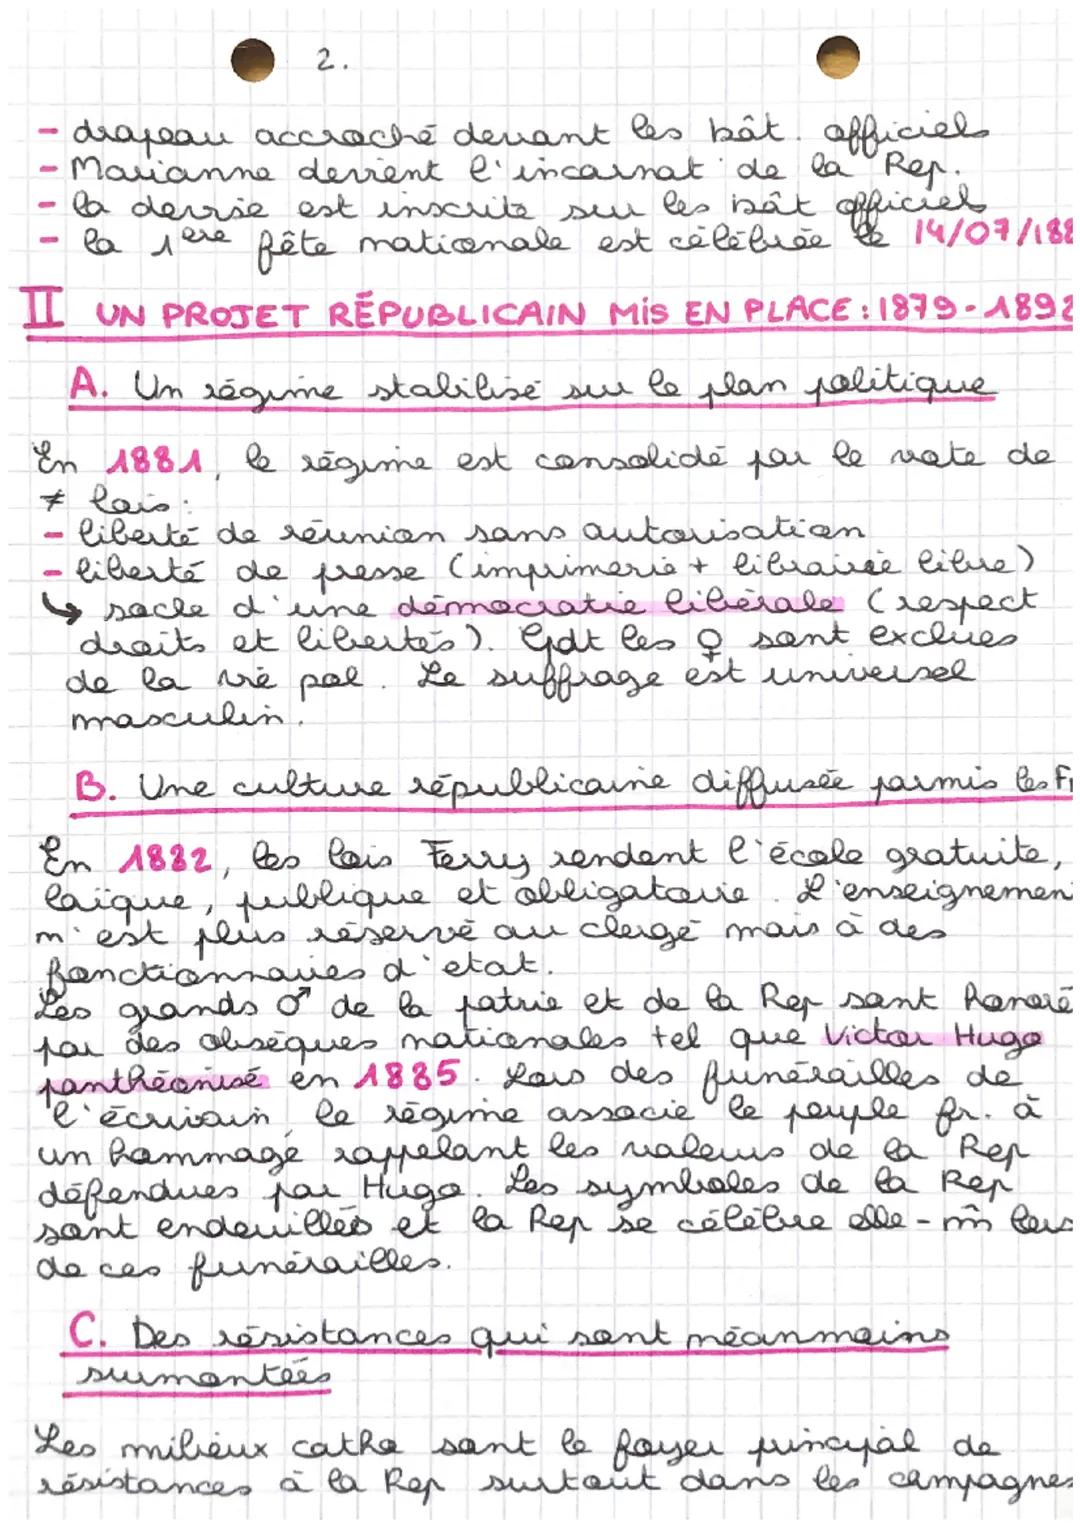 2.
- drapeau accroché devant les bât. officiels
- Marianne devient l'incarnat° de la Rep.
- la devise est inscrite sur les bât officiels
- la 1ère fête nationale est célébrée le 14/07/188
II UN PROJET RÉPUBLICAIN MIS EN PLACE : 1879-1892
A. Un régime stabilisé sur le plan politique
En 1881, le régime est consolidé par le vote de
≠ lois :
- liberté de réunion sans autorisation
- liberté de presse (imprimerie + librairie libre)
↳ socle d'une démocratie libérale (respect
droits et libertés). Cpdt les ♀ sont exclues
de la vie pol. Le suffrage est universel
masculin.
B. Une culture républicaine diffusée parmis les Fr
En 1882, les lois Ferry rendent l'école gratuite,
laïque, publique et obligatoire. L'enseignemen
n'est plus réservé au clergé mais à des
fonctionnaires d'etat.
Les grands ♂ de la patrie et de la Rep sont honoré
par des obsèques nationales tel que Victor Hugo
panthéonisé en 1885. Lors des funérailles de
l'écrivain, le régime associe le peuple fr. à
un hommage rappelant les valeurs de la Rep
défendues par Hugo. Les symboles de la Rep
sont endeuillés et la Rep se célèbre elle-m̂ lors
de ces funérailles.
C. Des résistances qui sont néanmoins
surmontées
Les milieux catho sont le foyer principal de
résistances à la Rep surtout dans les campagnes